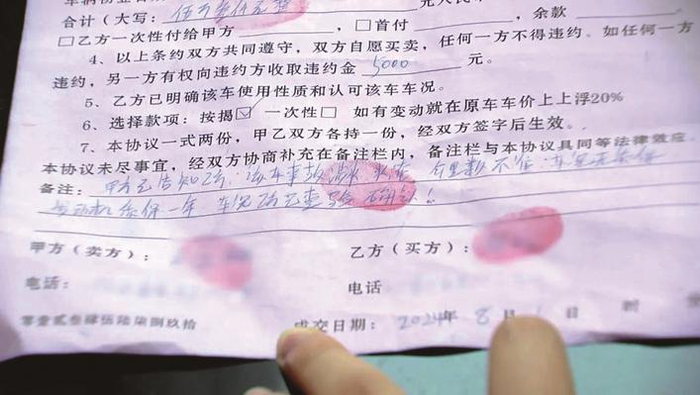 合计（大写：伍万柒仟元整 元人民
□乙方一次性付给甲方 ，□首付 ，余款
4、以上条约双方共同遵守，双方自愿买卖，任何一方不得违约。如任何一方
违约，另一方有权向违约方收取违约金 5000 元。
5、乙方已明确该车使用性质和认可该车车况。
6、选择款项：按揭☑ 一次性□ 如有变动就在原车车价上上浮20%
7、本协议一式两份，甲乙双方各持一份，经双方签字后生效。
本协议未尽事宜，经双方协商补充在备注栏内，备注栏与本协议具同等法律效应。
备注：甲方已告知乙方，该车事故 公里数不保
发动机 保一年 车况乙方已查验 确认！
甲方（卖方）： 乙方（买方）：
电话： 电话
零壹贰叁肆伍陆柒捌玖拾 成交日期： 2024年 8 月 1 日